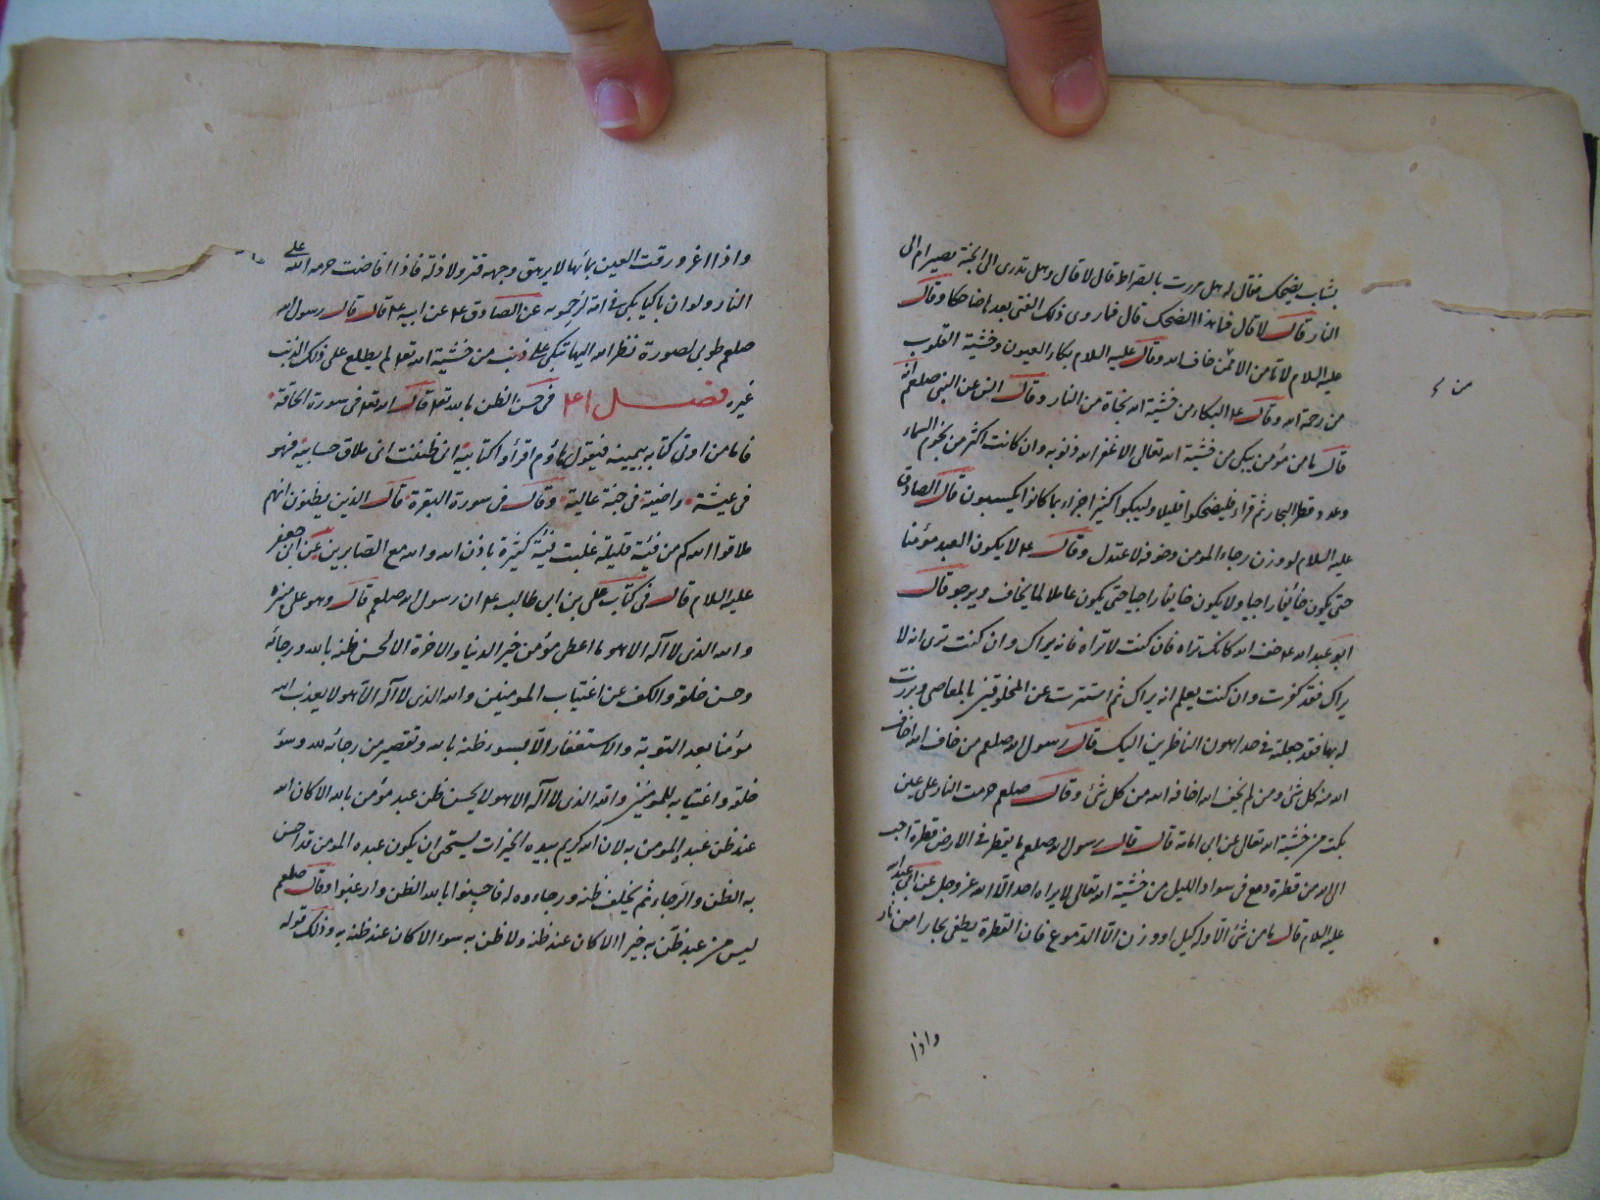 بشاب يضحك فقال له هل مررت بالصراط قال لا قال وهل تدرى الى الجنة تصير ام الى
النار قال لا قال فما هذا الضحك قال فما روى ذلك الفتى بعد ضاحكا وقال
عليه السلام لا تامن الا من خاف الله وقال عليه السلام بكاء العيون وخشية القلوب
من رحمة الله وقال ع البكاء من خشية الله نجاة من النار وقال انس عن النبى صلعم انه
قال ما من مؤمن يبكى من خشية الله تعالى الا غفر الله ذنوبه وان كانت اكثر من نجوم السماء
وعدد قطر البحار ثم قراء فليضحكوا قليلا وليبكوا كثيرا جزاء بما كانوا يكسبون قال الصادق
عليه السلام لو وزن رجاء المومن وخوفه لاعتدل وقال ع لا يكون العبد مؤمنا
حتى يكون خائفا راجيا ولا يكون خايفا راجيا حتى يكون عاملا لما يخاف ويرجو قال
ابو عبد الله ع خف الله كانك تراه فان كنت لا تراه فانه يراك وان كنت ترى انه لا
يراك فقد كفرت وان كنت يعلم انه يراك ثم استترت عن المخلوقين بالمعاصى وبرزت
له بها فقد جعلته فى حد اهون الناظرين اليك قال رسول الله صلعم من خاف الله اخاف
الله منه كل شئ ومن لم يخف الله اخافه الله من كل شئ وقال صلعم حرمت النار على عين
بكت من خشية الله تعالى عن ابى امامة قال قال رسول الله صلعم ما يقطر فى الارض قطرة احب
الى الله من قطرة دمع فى سواد الليل من خشية الله تعالى لا يراه احد الا الله عز وجل عن ابى عبد الله
عليه السلام قال ما من شئ الا وله كيل او وزن الا الدموع فان القطرة يطفى بحارا من نار
واذا
واذا اغرورقت العين بمائها لا يرهق وجهه قتر ولا ذلة فاذا فاضت حرمه الله على
النار ولو ان باكيا بكى فى امة لرحموا به عن الصادق ع عن ابيه ع قال قال رسول الله
صلعم طوبى لصورة نظر الله اليها تبكى على ذنب من خشية الله تعا لم يطلع على ذلك الذنب
غيره فصل فى حسن الظن بالله تعا قال الله تعا فى سورة الحاقة
فاما من اوتى كتابه بيمينه فيقول هاؤم اقرأوا كتابيه انى ظننت انى ملاق حسابيه فهو
فى عيشة راضية فى جنة عالية وقال فى سورة البقرة قال الذين يظنون انهم
ملاقوا الله كم من فئة قليلة غلبت فئة كثيرة باذن الله والله مع الصابرين عن ابى جعفر
عليه السلام قال فى كتاب على بن ابى طالب ع ان رسول الله صلعم قال وهو على منبره
والله الذى لا اله الا هو ما اعطى مؤمن خير الدنيا والاخرة الا بحسن ظنه بالله ورجائه
وحسن خلقه والكف عن اغتياب المومنين والله الذى لا اله الا هو لا يعذب الله
مؤمنا بعد التوبة والاستغفار الا بسوء ظنه بالله وتقصير من رجائه لله وسؤ
خلقه واغتيابه للمومنين والله الذى لا اله الا هو لا يحسن ظن عبد مؤمن بالله الا كان الله
عند ظن عبده المومن به لان الله كريم بيده الخيرات يستحى ان يكون عبده المومن قد احسن
به الظن والرجاء ثم يخلف ظنه ورجاءه له فاحسنوا بالله الظن وارغبوا وقال صلعم
ليس من عبد ظن به خيرا الا كان عند ظنه ولا ظن به سوء الا كان عند ظنه به وذلك قوله